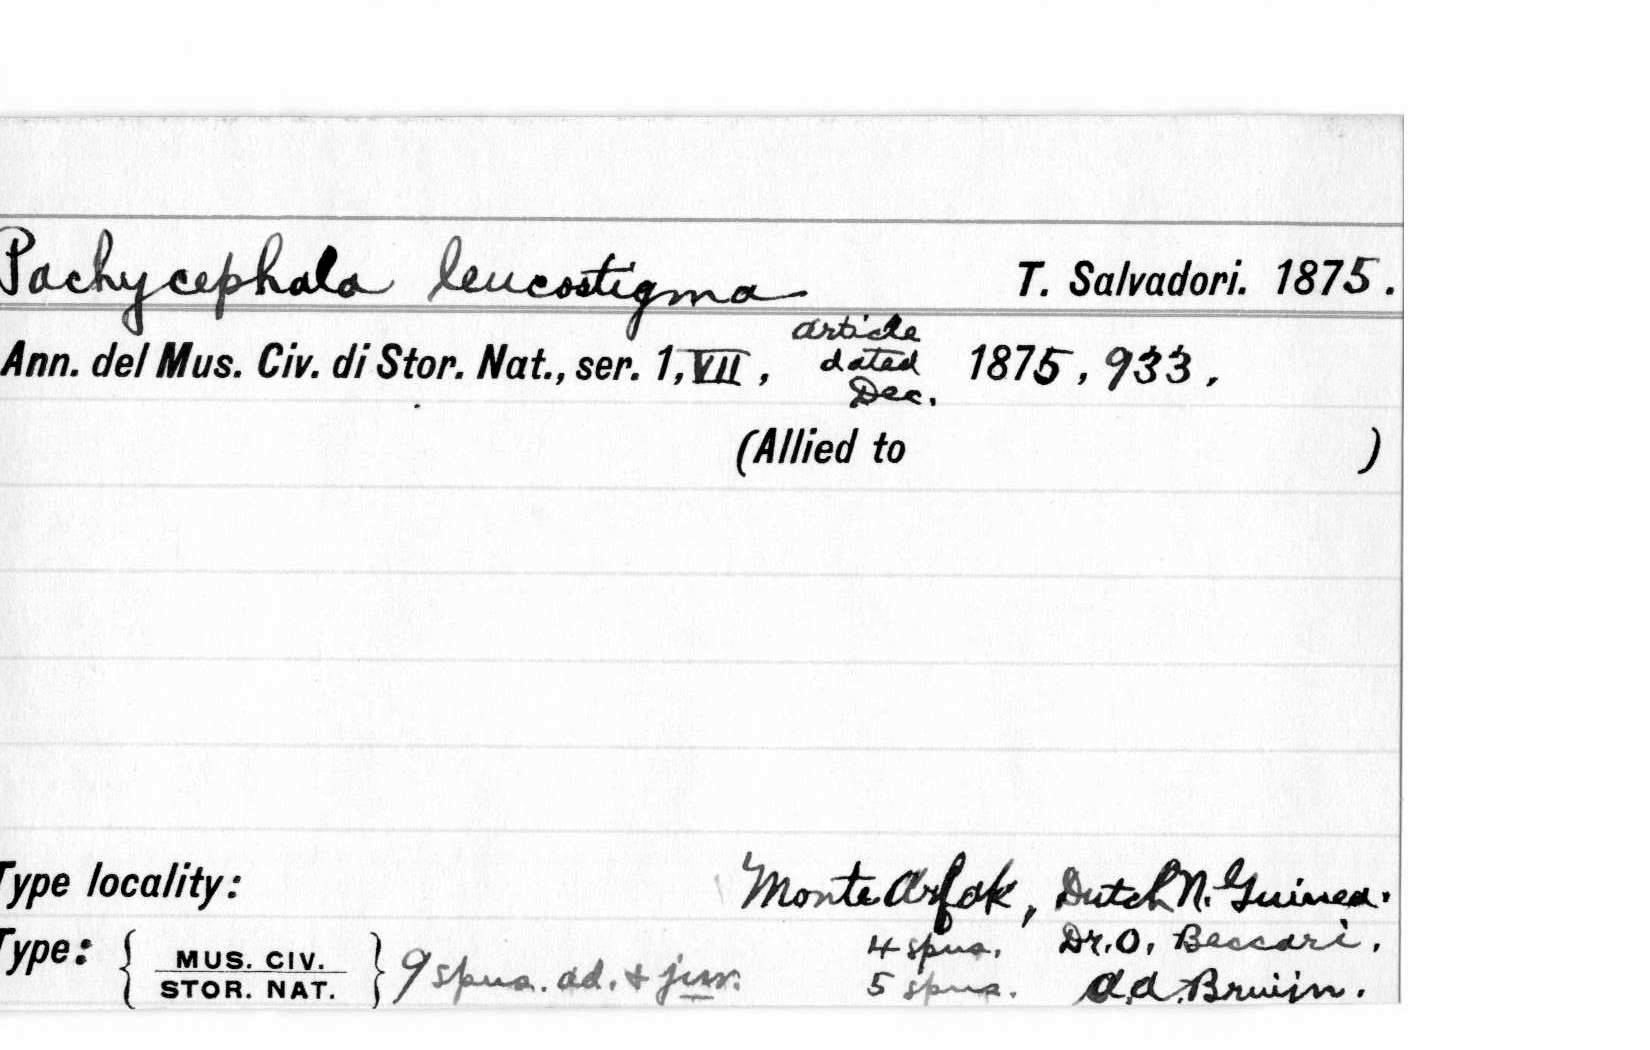 Pachycephala leucostigma T. Salvadori. 1875.
Ann. del Mus. Civ. di Stor. Nat., ser. 1, VII, article dated Dec. 1875, 933,
(Allied to )
Type locality: Monte Arfak, Dutch N. Guinea.
Type: { MUS. CIV. STOR. NAT. } 9 spns. ad. & juv. 4 spns. Dr. O. Beccari.
5 spns. A.A. Bruijn.